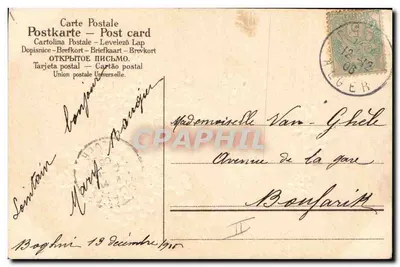 Carte Postale
Postkarte — Post card
Cartolina Postale - Levelező Lap
Dopisnice - Brefkort - Briefkaart - Brevkort
ОТКРЫТОЕ ПИСЬМО.
Tarjeta postal — Cartão postal
Union postale Universelle.
Lointain
bonjour
Mary
ALGER
CPARAMA
Mademoiselle Van-Ghèle
Avenue de la gare
Boufarik
II
Boghni 13 décembre 1905